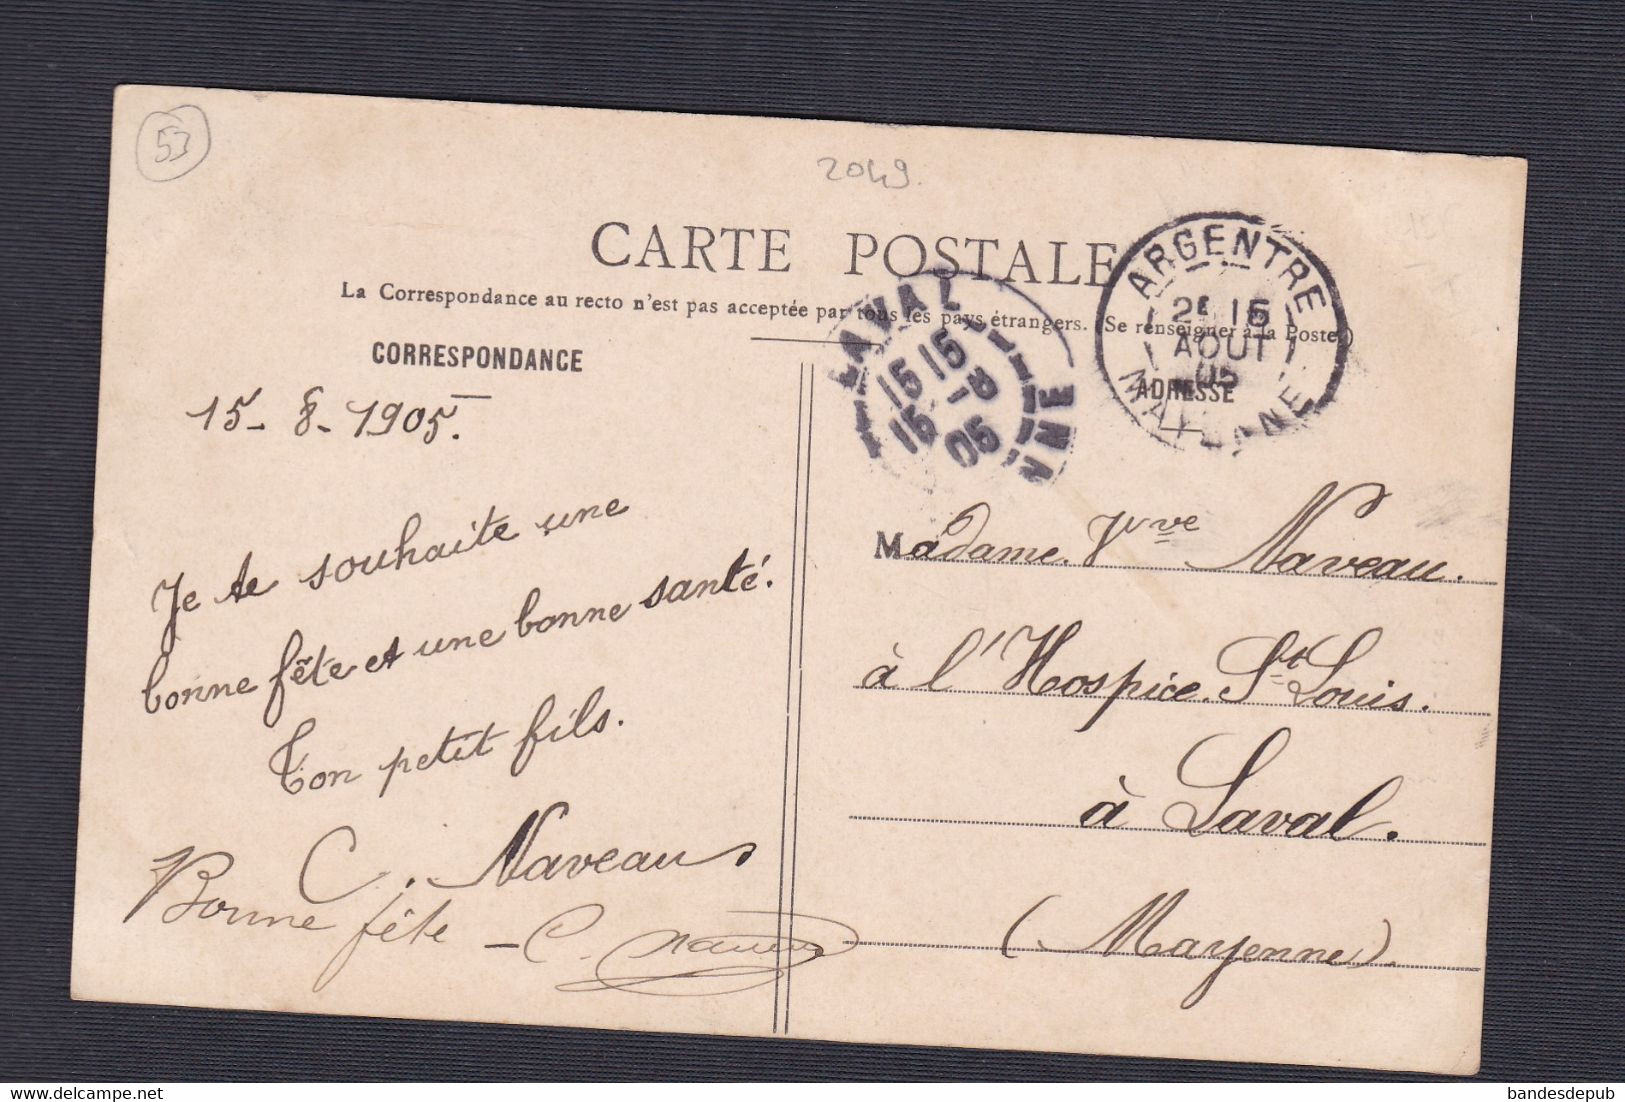 53
2049
CARTE POSTALE
La Correspondance au recto n'est pas acceptée par tous les pays étrangers. (Se renseigner à la Poste.)
CORRESPONDANCE
ADRESSE
LAVAL
15 15
15 -8
05
NNE
ARGENTRE
2E 15
AOUT
05
MAYENNE
15 - 8 - 1905.
Je te souhaite une
bonne fête et une bonne santé.
Ton petit fils.
C. Naveau
Bonne fête - C. Naveau
Madame Vve Naveau.
à l'Hospice St Louis.
à Laval.
(Mayenne).
bandesdepub